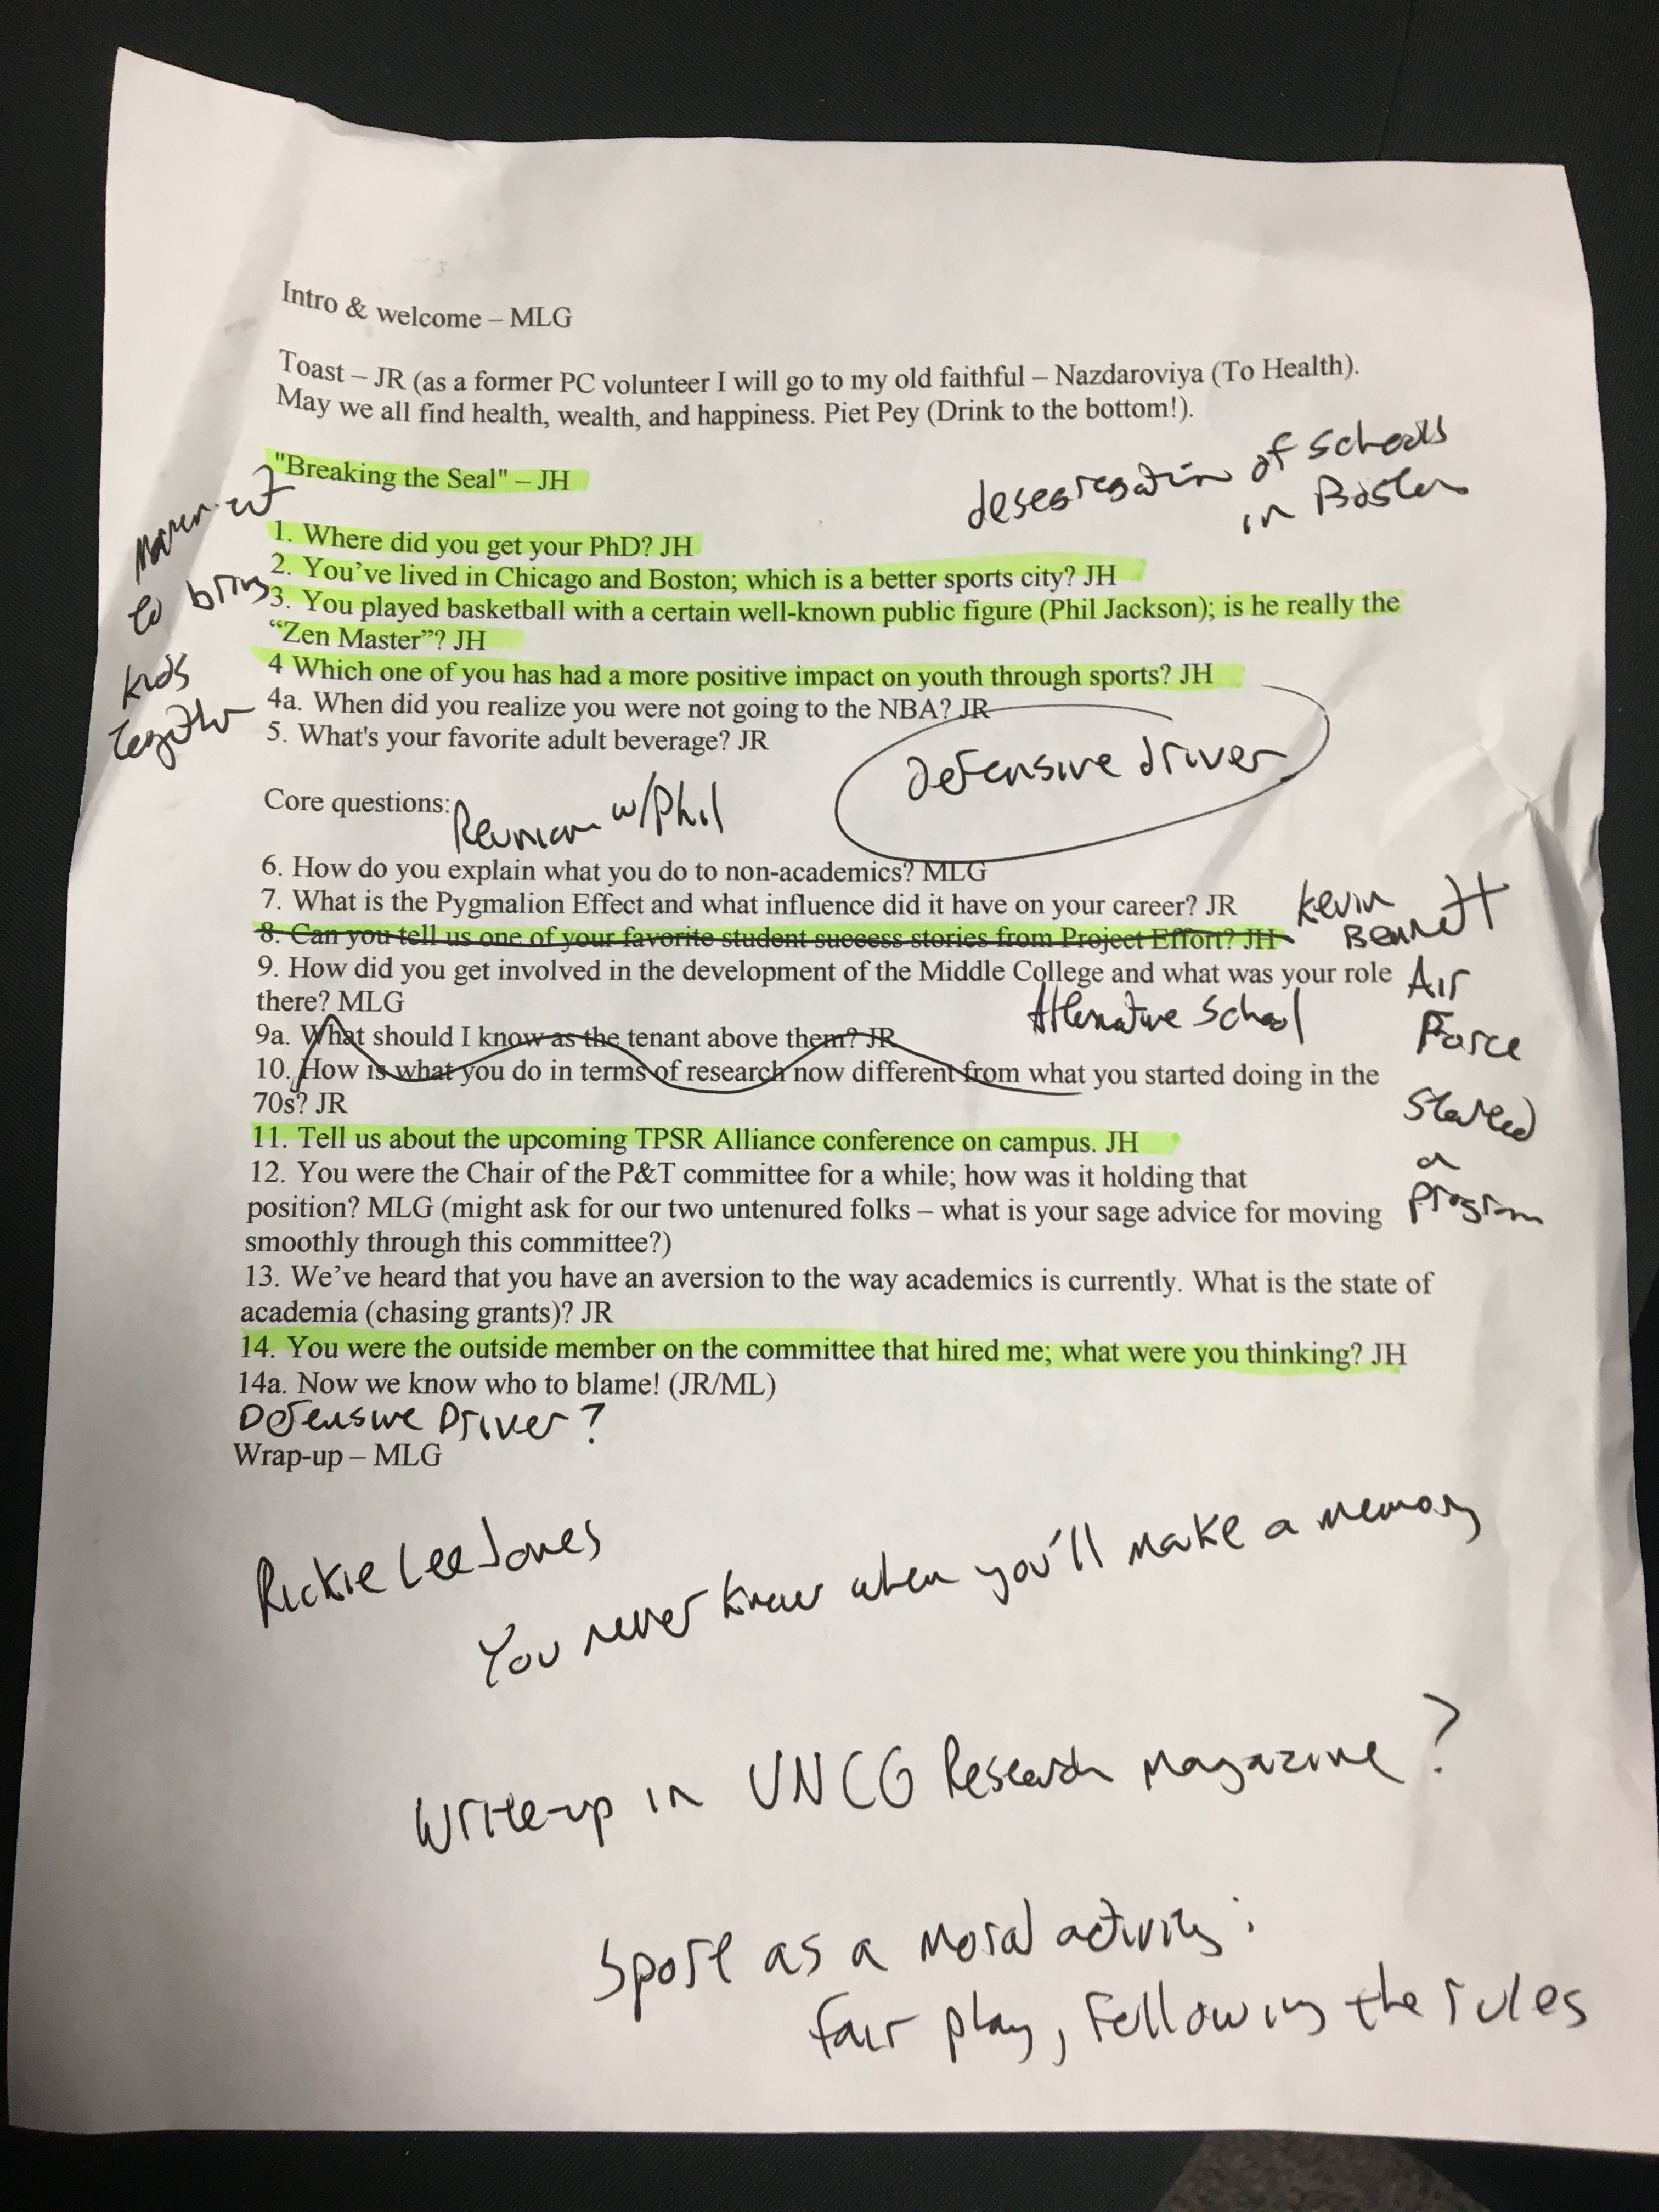 Intro & welcome – MLG
Toast – JR (as a former PC volunteer I will go to my old faithful – Nazdaroviya (To Health).
May we all find health, wealth, and happiness. Piet Pey (Drink to the bottom!).
desegregation of schools
in Boston
"Breaking the Seal" – JH
Movement
to bring
kids
together
1. Where did you get your PhD? JH
2. You've lived in Chicago and Boston; which is a better sports city? JH
3. You played basketball with a certain well-known public figure (Phil Jackson); is he really the
“Zen Master”? JH
4 Which one of you has had a more positive impact on youth through sports? JH
4a. When did you realize you were not going to the NBA? JR
5. What's your favorite adult beverage? JR
Defensive driver
Core questions:
Reunion w/Phil
6. How do you explain what you do to non-academics? MLG
7. What is the Pygmalion Effect and what influence did it have on your career? JR
8. Can you tell us one of your favorite student success stories from Project Effort? JH
Kevin
Bennett
Air
Force
Started
a
program
9. How did you get involved in the development of the Middle College and what was your role
there? MLG
Alternative School
9a. What should I know as the tenant above them? JR
10. How is what you do in terms of research now different from what you started doing in the
70s? JR
11. Tell us about the upcoming TPSR Alliance conference on campus. JH
12. You were the Chair of the P&T committee for a while; how was it holding that
position? MLG (might ask for our two untenured folks – what is your sage advice for moving
smoothly through this committee?)
13. We’ve heard that you have an aversion to the way academics is currently. What is the state of
academia (chasing grants)? JR
14. You were the outside member on the committee that hired me; what were you thinking? JH
14a. Now we know who to blame! (JR/ML)
Defensive Driver?
Wrap-up – MLG
Rickie Lee Jones
You never know when you'll make a memory
Write-up in UNCG Research Magazine?
Sport as a moral activity:
fair play, following the rules